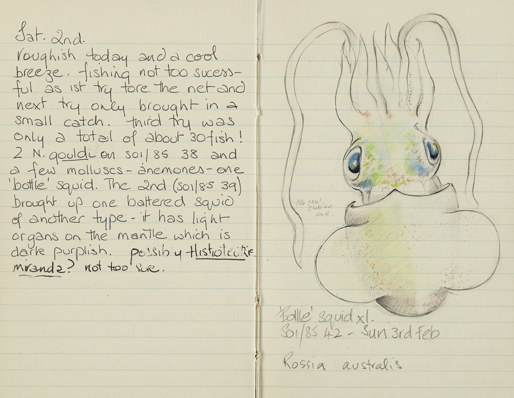 Sat. 2nd.
roughish today and a cool
breeze. fishing not too sucess-
ful as 1st try tore the net and
next try only brought in a
small catch. third try was
only a total of about 30 fish!
2 N. gouldi on S01/85 38 and
a few molluscs - anemones - one
'bottle' squid. The 2nd (S01/85 39)
brought up one battered squid
of another type - it has light
organs on the mantle which is
dark purplish. possibly Histioteuthis
miranda? not too sure.
'Bottle' squid x1.
S01/85 42 - Sun 3rd Feb
Rossia australis